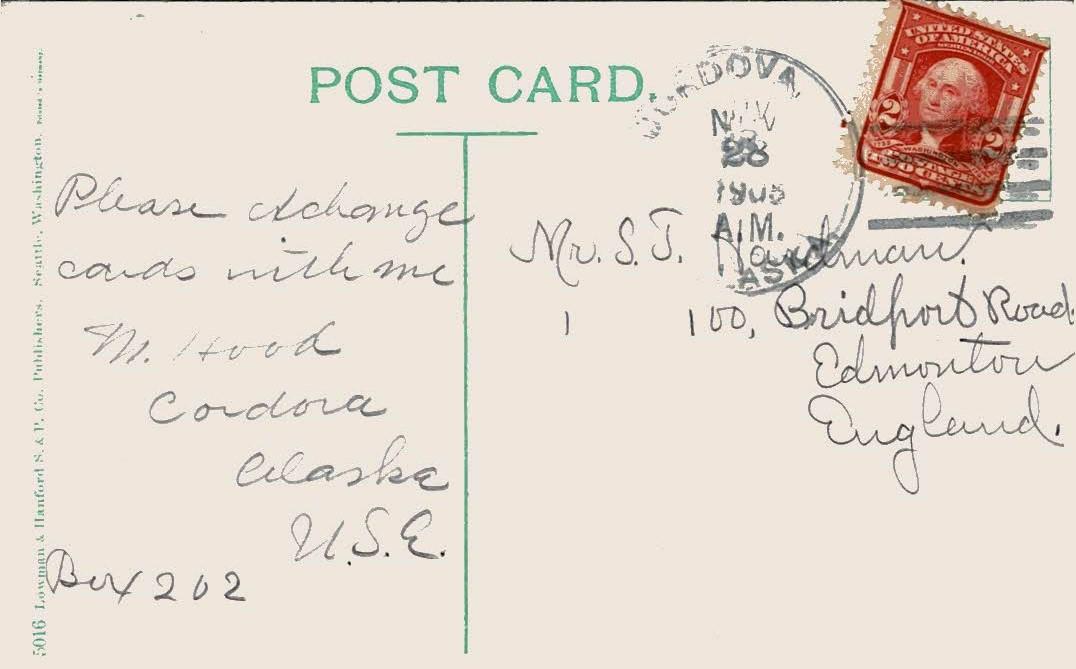 POST CARD.
CORDOVA
NOV
28
A.M.
ALASKA
UNITED STATES
OF AMERICA
2 2
WASHINGTON
TWO CENTS
Please exchange
cards with me
M. Hood
Cordova
Alaska
U.S.A.
Box 202
Mr. S. J. Hardman.
1 100, Bridport Road
Edmonton
England.
5016 Lowman & Hanford S. & P. Co. Publishers. Seattle, Washington.